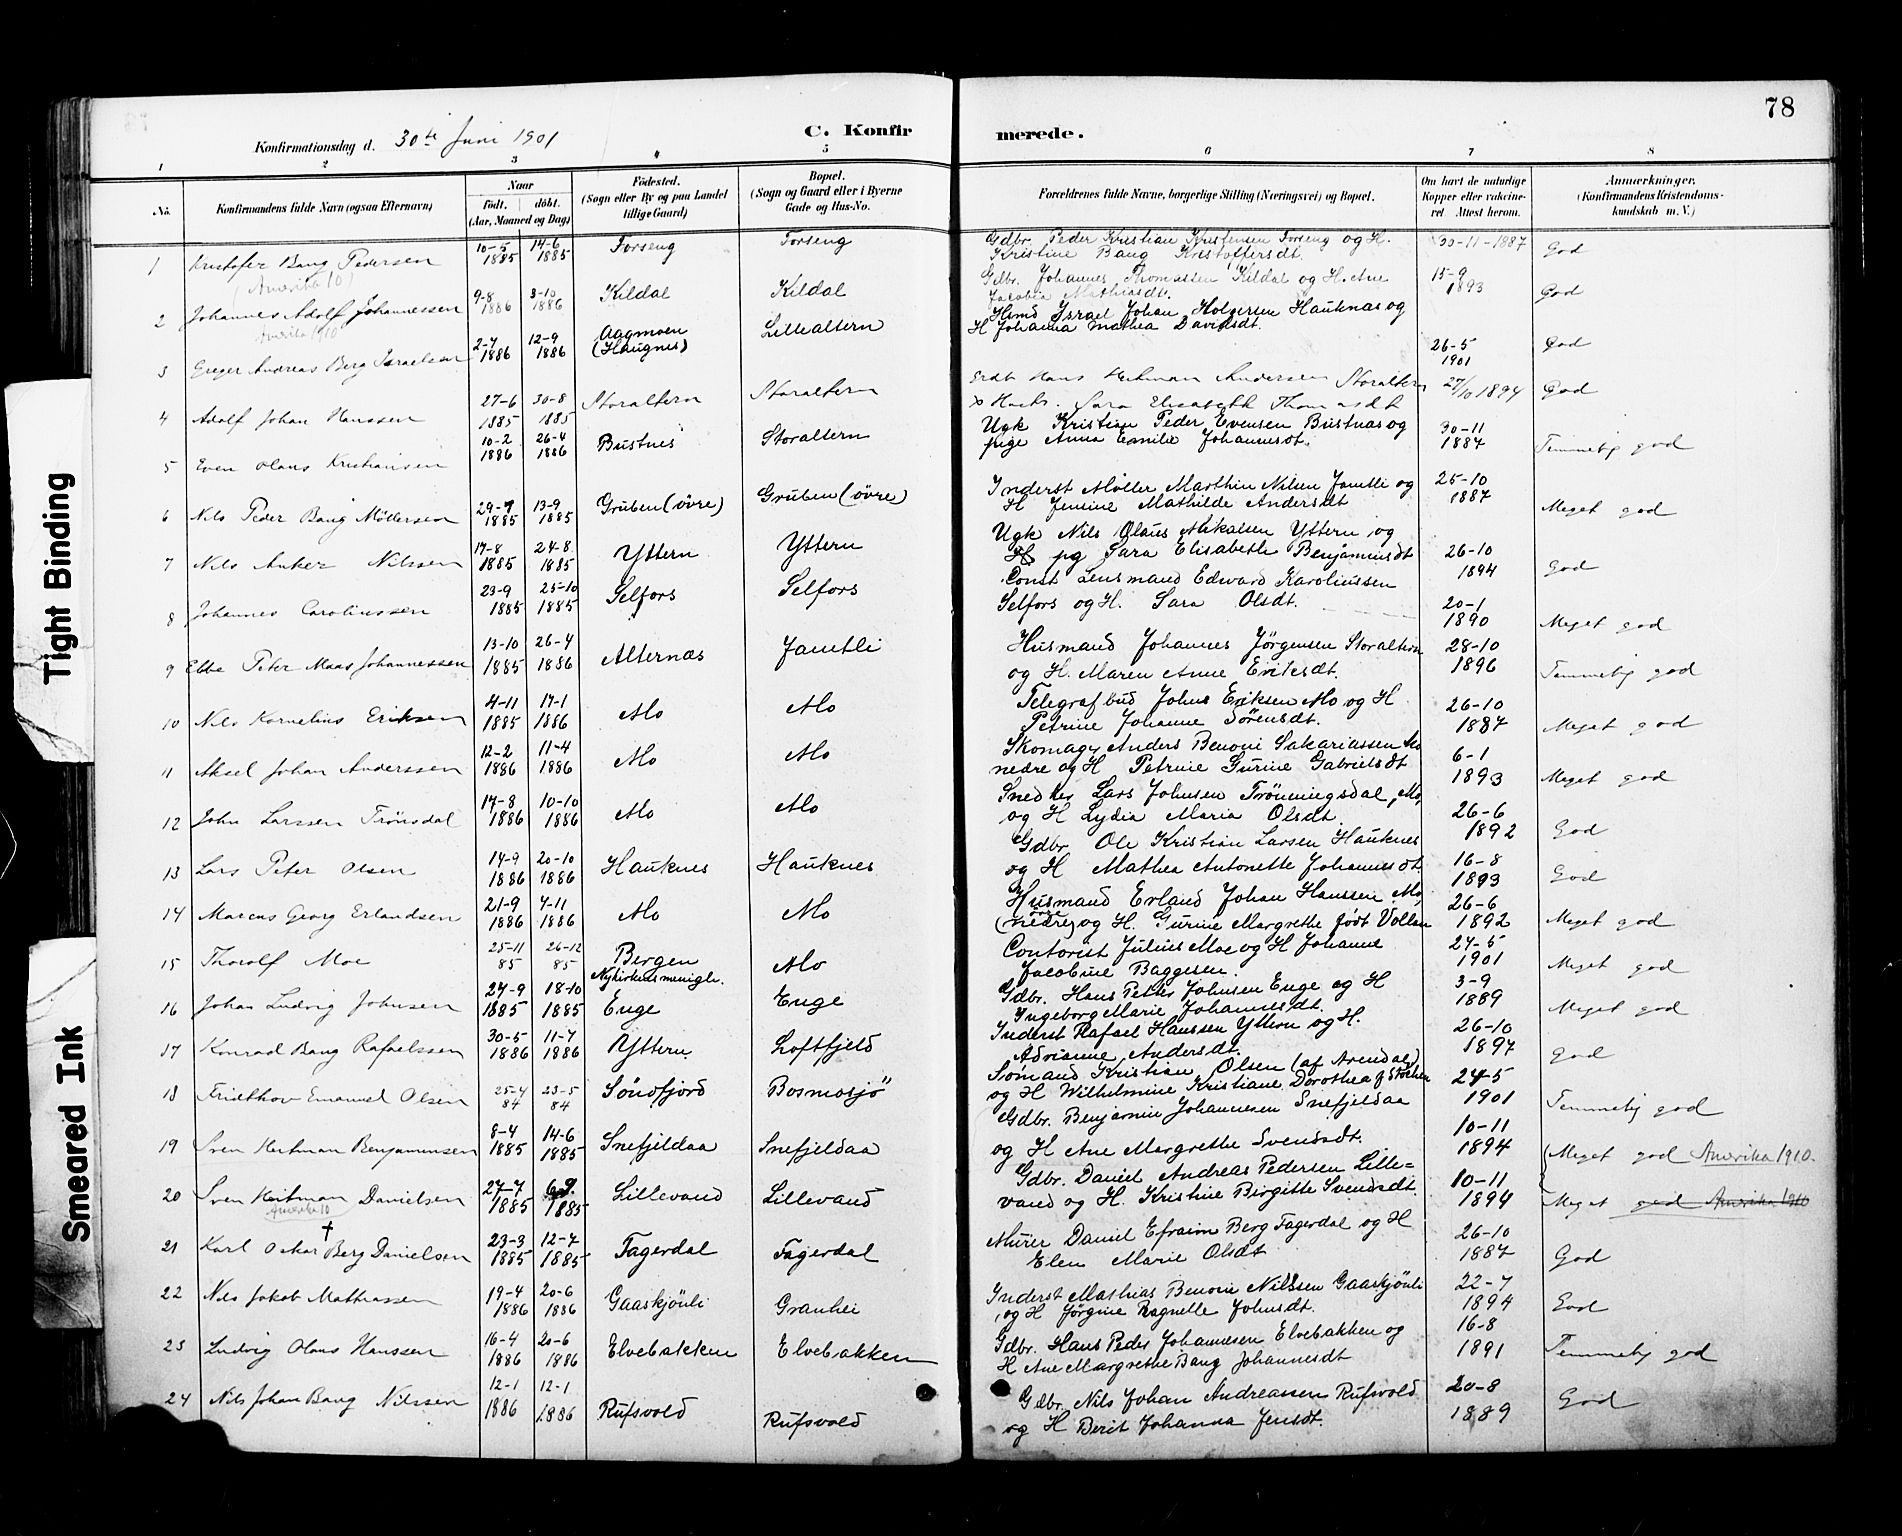 78
Konfirmationsdag d. 30te Juni 1901
C. Konfirmerede.
1 2 3 4 5 6 7 8
No. Konfirmandens fulde Navn (ogsaa Efternavn) Naar födt. döbt. (Aar, Maaned og Dag) Födested. (Sogn eller By og paa Landet tillige Gaard) Bopæl. (Sogn og Gaard eller i Byerne Gade og Hus-No.) Forældrenes fulde Navne, borgerlige Stilling (Næringsvei) og Bopæl. Om havt de naturlige Kopper eller vaccineret Attest herom. Anmærkninger. (Konfirmandens Kristendomskundskab m. V.)
1 Kristofer Bang Pedersen 10-5 1885 14-6 1885 Forseng Forseng Gdbr. Peder Kristian Kristensen Forseng og H. 30-11-1887 God
(Amerika 10) Kristine Bang Kristoffersdt.
2 Johannes Adolf Johannessen 9-8 1886 3-10 1886 Kildal Kildal Gdbr. Johannes Thomassen Kildal og H. Ane 15-9 1893 God
Amerika 1910 Jacobia Mathiasdt.
3 Greger Andreas Berg Israelsen 2-7 1886 12-9 1886 Aagmoen (Haugnes) Lillealtern Hsmd Israel Johan Holgersen Hauknas og 26-5 1901 God
H Johanna Mathea Davidsdt.
4 Adolf Johan Hanssen 27-6 1885 30-8 1885 Storaltern Storaltern Hans Hertman Andersen Storaltern 27/10 1894 God
Sara Elisabeth Thomasdt
5 Even Olaus Kristiansen 10-2 1886 26-4 1886 Bustnes Storaltern Ugk Kristian Peder Evensen Bustnas og 30-11 1887 Temmelig god
pige Anna Emilie Johannesdt.
6 Nils Peder Bang Möllersen 29-7 1885 13-9 1885 Gruben (övre) Gruben (övre) Inderst Møller Marthin Nilsen Jamtli og 25-10 1887 Meget god
H Jensine Mathilde Andersdt
7 Nils Anker Nilssen 17-8 1885 24-8 1885 Yttern Yttern Ugk Nils Olaus Mikalsen Yttern og 26-10 1894 God
H pg Sara Elisabeth Benjaminsdt
8 Johannes Caroliussen 23-9 1885 25-10 1885 Selfors Selfors Const Lensmand Edvard Karoliussen 20-1 1890 Meget god
Selfors og H. Sara Olsdt.
9 Ebbe Peter Maas Johannessen 13-10 1885 26-4 1886 Alternæs Jamtli Husmand Johannes Jørgensen Storaltern 28-10 1896 Temmelig god
og H. Maren Anne Eriksdt.
10 Nils Kornelius Eriksen 4-11 1885 17-1 1886 Mo Mo Telegrafbud Johns Eriksen Mo og H 26-10 1887 Meget god
Petrine Johanne Sørensdt.
11 Aksel Johan Anderssen 12-2 1886 11-4 1886 Mo Mo Skomager Anders Benoni Sakariassen Mo 6-1 1893 Meget god
nedre og H Petrine Gurine Gabrielsdt
12 John Larssen Trönsdal 17-8 1886 10-10 1886 Mo Mo Snedker Lars Johnsen Trönningsdal, Mo, 26-6 1892 God
og H Lydia Maria Olsdt.
13 Lars Peter Olsen 14-9 1886 20-10 1886 Hauknes Hauknes Gdbr Ole Kristian Larsen Hauknes 16-8 1893 God
og H Mathea Antonette Johannesdt
14 Marcus Georg Erlandsen 21-9 1886 7-11 1886 Mo Mo Husmand Erland Johan Hanssen Mo, 26-6 1892 Meget god
(nedre) övre og H. Gurine Margrethe født Vollan
15 Thorolf Moe 25-11 85 26-12 85 Bergen Nykirkens menigh. Mo Contorist Julius Moe og H Johanne 27-5 1901 Meget god
Jacobine Baggesen.
16 Johan Ludvig Johnsen 27-9 1885 18-10 1885 Enge Enge Gdbr. Hans Petter Johnsen Enge og H 3-9 1889 Meget god
Ingeborg Marie Johannesdt.
17 Konrad Bang Rafaelssen 30-5 1886 11-7 1886 Yttern Loftfjeld Inderst Rafael Hanssen Yttern og H. 26-10 1897 God
Adrianne Andersdt.
18 Fridthov Emanuel Olsen 25-4 84 23-5 84 Söndfjord Bosmosjö Sømand Kristian Olsen (af Arendal) 27-5 1901 Temmelig god
og H Wilhelmine Kristiane Dorothea f
19 Sven Hertman Benjaminsen 8-4 1885 14-6 1885 Snefjeldaa Snefjeldaa Gdbr. Benjamin Johannesen Snefjeldaa 10-11 1894 (Meget god Amerika 1910.
og H Ane Margrethe Svensdt.
20 Sven Hertman Danielsen 27-7 1885 6-9 1885 Lillevand Lillevand Gdbr. Daniel Andreas Pedersen Lille= 10-11 1894 Meget god Amerika 1910
Amerika 10 vand og H. Kristine Birgitte Svendsdt.
21 Karl Oskar Berg Danielsen † 23-3 1885 12-7 1885 Fagerdal Fagerdal Murer Daniel Efraim Berg Fagerdal og H 26-10 1887 God
Elen Marie Olsdt
22 Nils Jakob Mathiassen 19-4 1886 20-6 1886 Gaaskjönli Granhei Inderst Mathias Benoni Nilssen Gaaskjönli 22-7 1894 God
og H Jørgine Ragnelle Johnsdt.
23 Ludvig Olaus Hanssen 16-4 1886 20-6 1886 Elvebakken Elvebakken Gdbr. Hans Peder Johannesen Elvebakken og 16-8 1891 Temmelig god
H Ane Margrethe Bang Johannesdt
24 Nils Johan Bang Nilssen 12-1 1886 12-1 1886 Rufsvold Rufsvold Gdbr. Nils Johan Andreassen Rufsvold 20-8 1889 God
og H Berit Johanna Jensdt.
Tight Binding
Smeared Ink